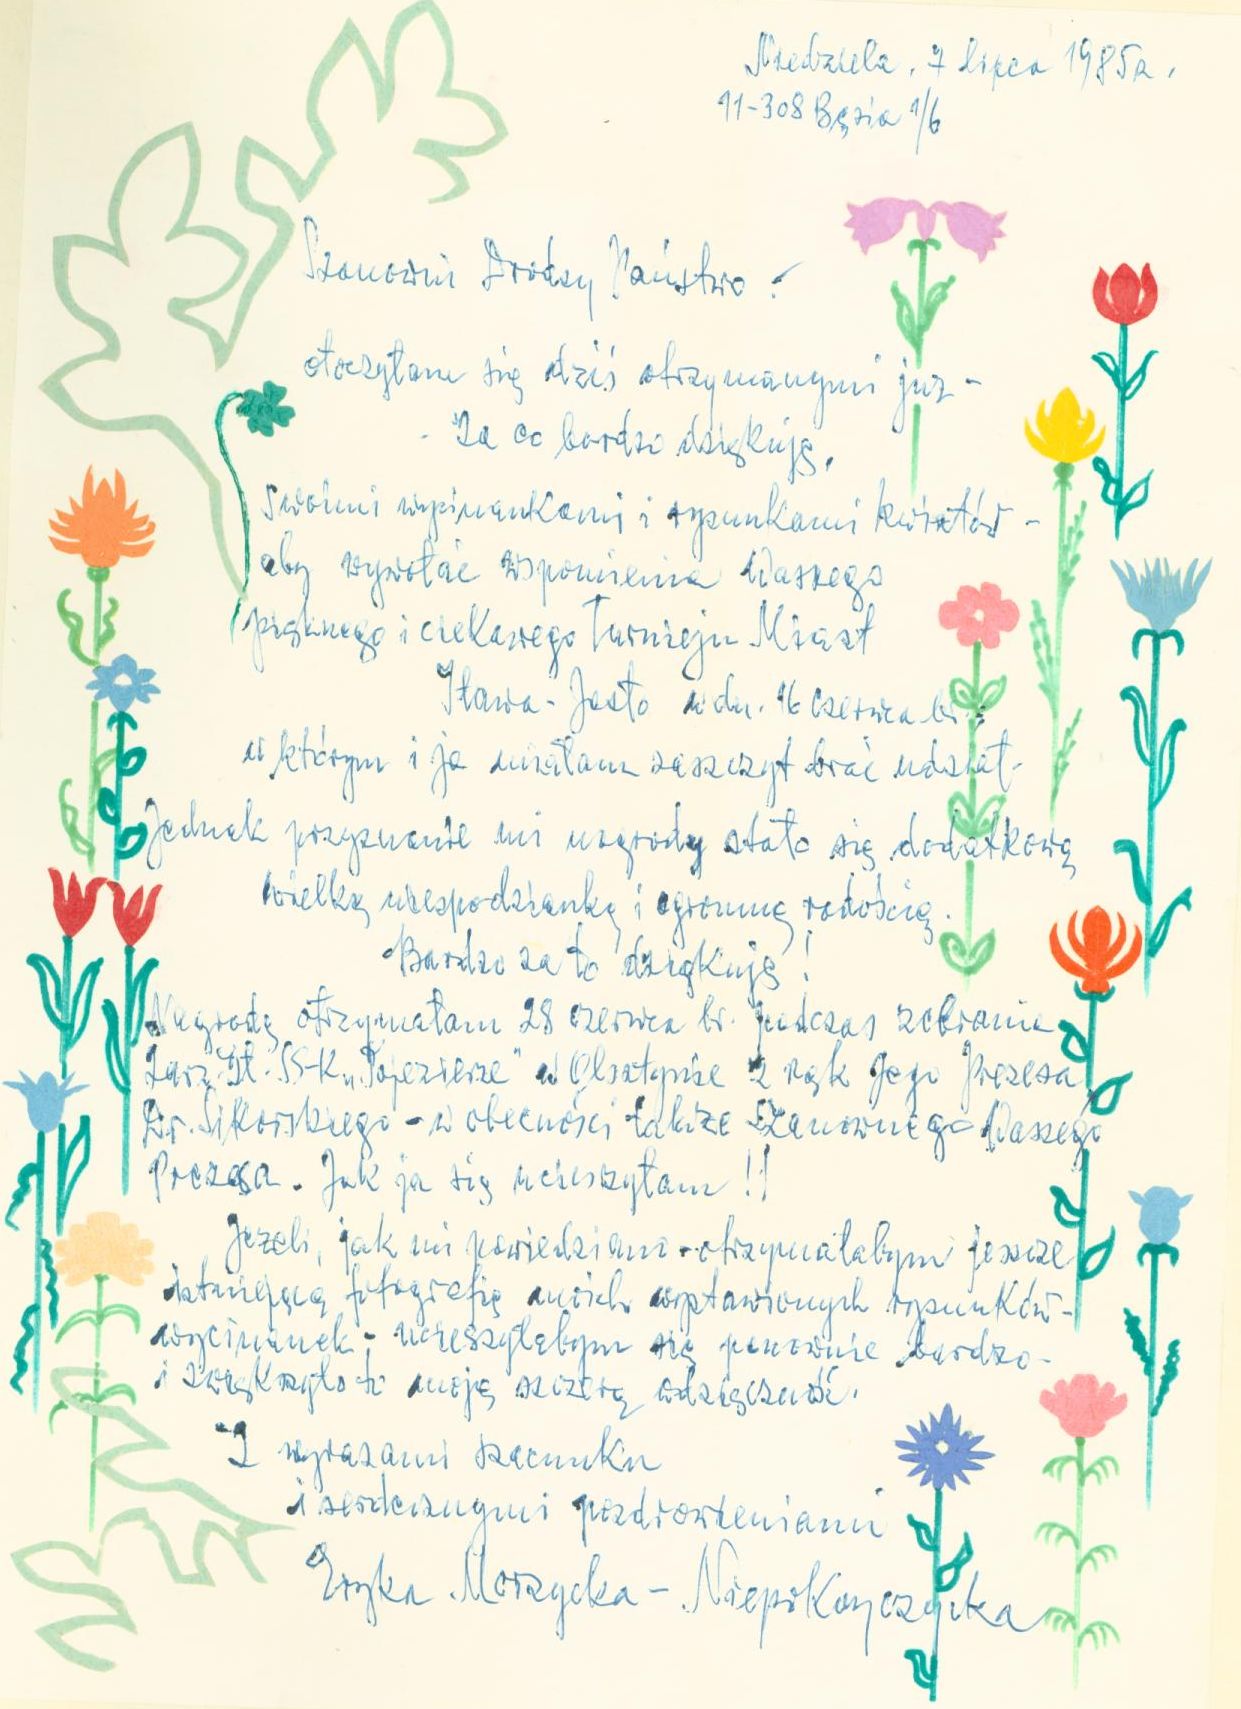 Niedziela, 7 lipca 1985r.
11-308 Bęsia 1/6
Szanowni Drodzy Państwo!
otoczyłam się dziś otrzymanymi już -
- Za co bardzo dziękuję,
swoimi wycinankami i rysunkami kwiatów -
aby wywołać wspomienia Waszego
pięknego i ciekawego Turnieju Miast
Iława - Jasło w dn. 16 czerwca br.:
w którym i ja miałam zaszczyt brać udział.
Jednak przyznanie mi nagrody stało się dodatkową
wielką niespodzianką i ogromną radością.
Bardzo za to dziękuję!
Nagrodę otrzymałam 28 czerwca br. podczas zebrania
S-K „Pojezierze" w Olsztynie z rąk Jego Prezesa
Dr. Sikorskiego - w obecności także Szanownego Waszego
Prezesa. Jak ja się ucieszyłam!!
Jeżeli, jak mi powiedziano - otrzymałabym jeszcze
istniejącą fotografię moich wystawionych rysunków-
wycinanek; ucieszyłabym się ponownie bardzo -
i zwiększyło to moją szczerą wdzięczność.
Z wyrazami szacunku
i serdecznymi pozdrowieniami
Eryka Morzycka - Niepokonczycka